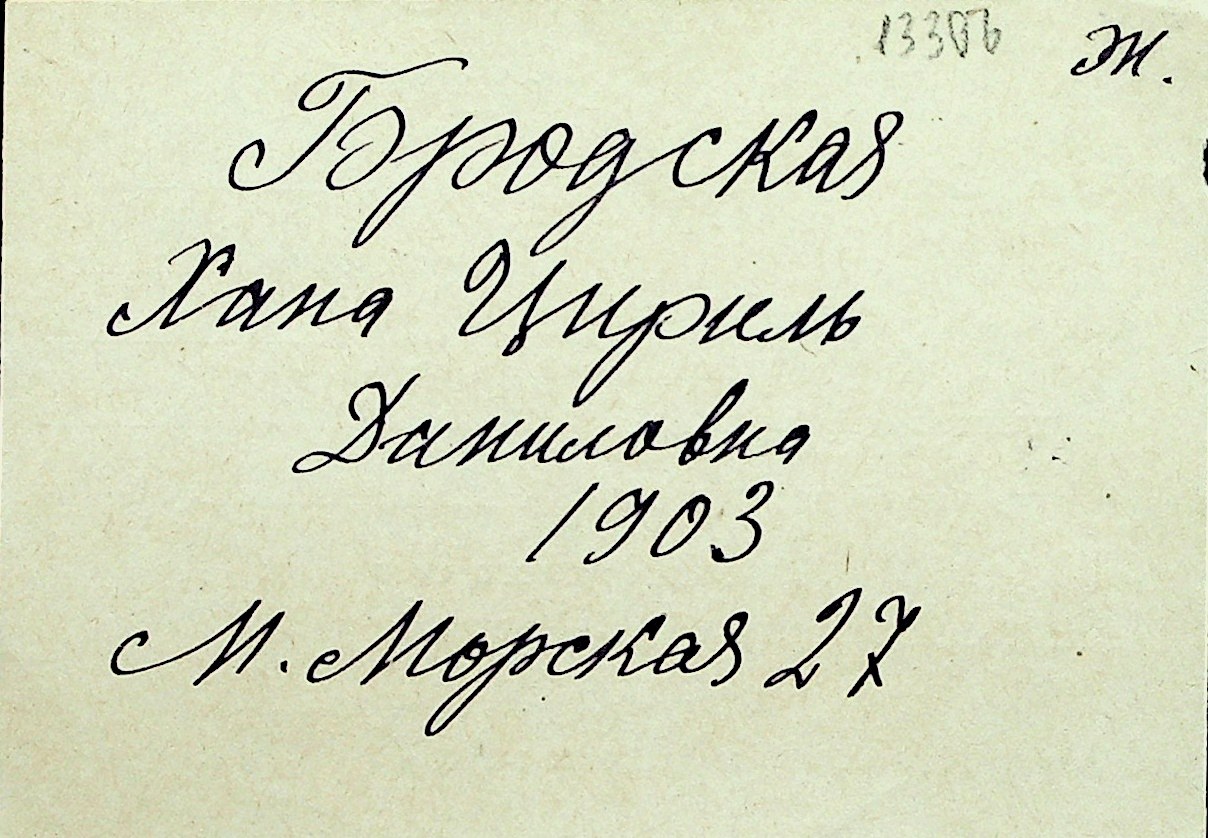 Ж.
Бродская
Хана Цириль
Даниловна
1903
М. Морская 27